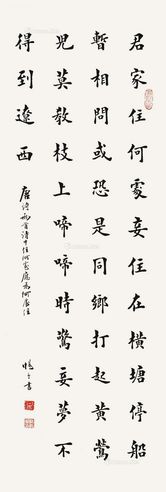 君家住何處妾住在橫塘停船
暫相問或恐是同鄉打起黃鶯
兒莫教枝上啼啼時驚妾夢不
得到遼西
唐詩兩首
書